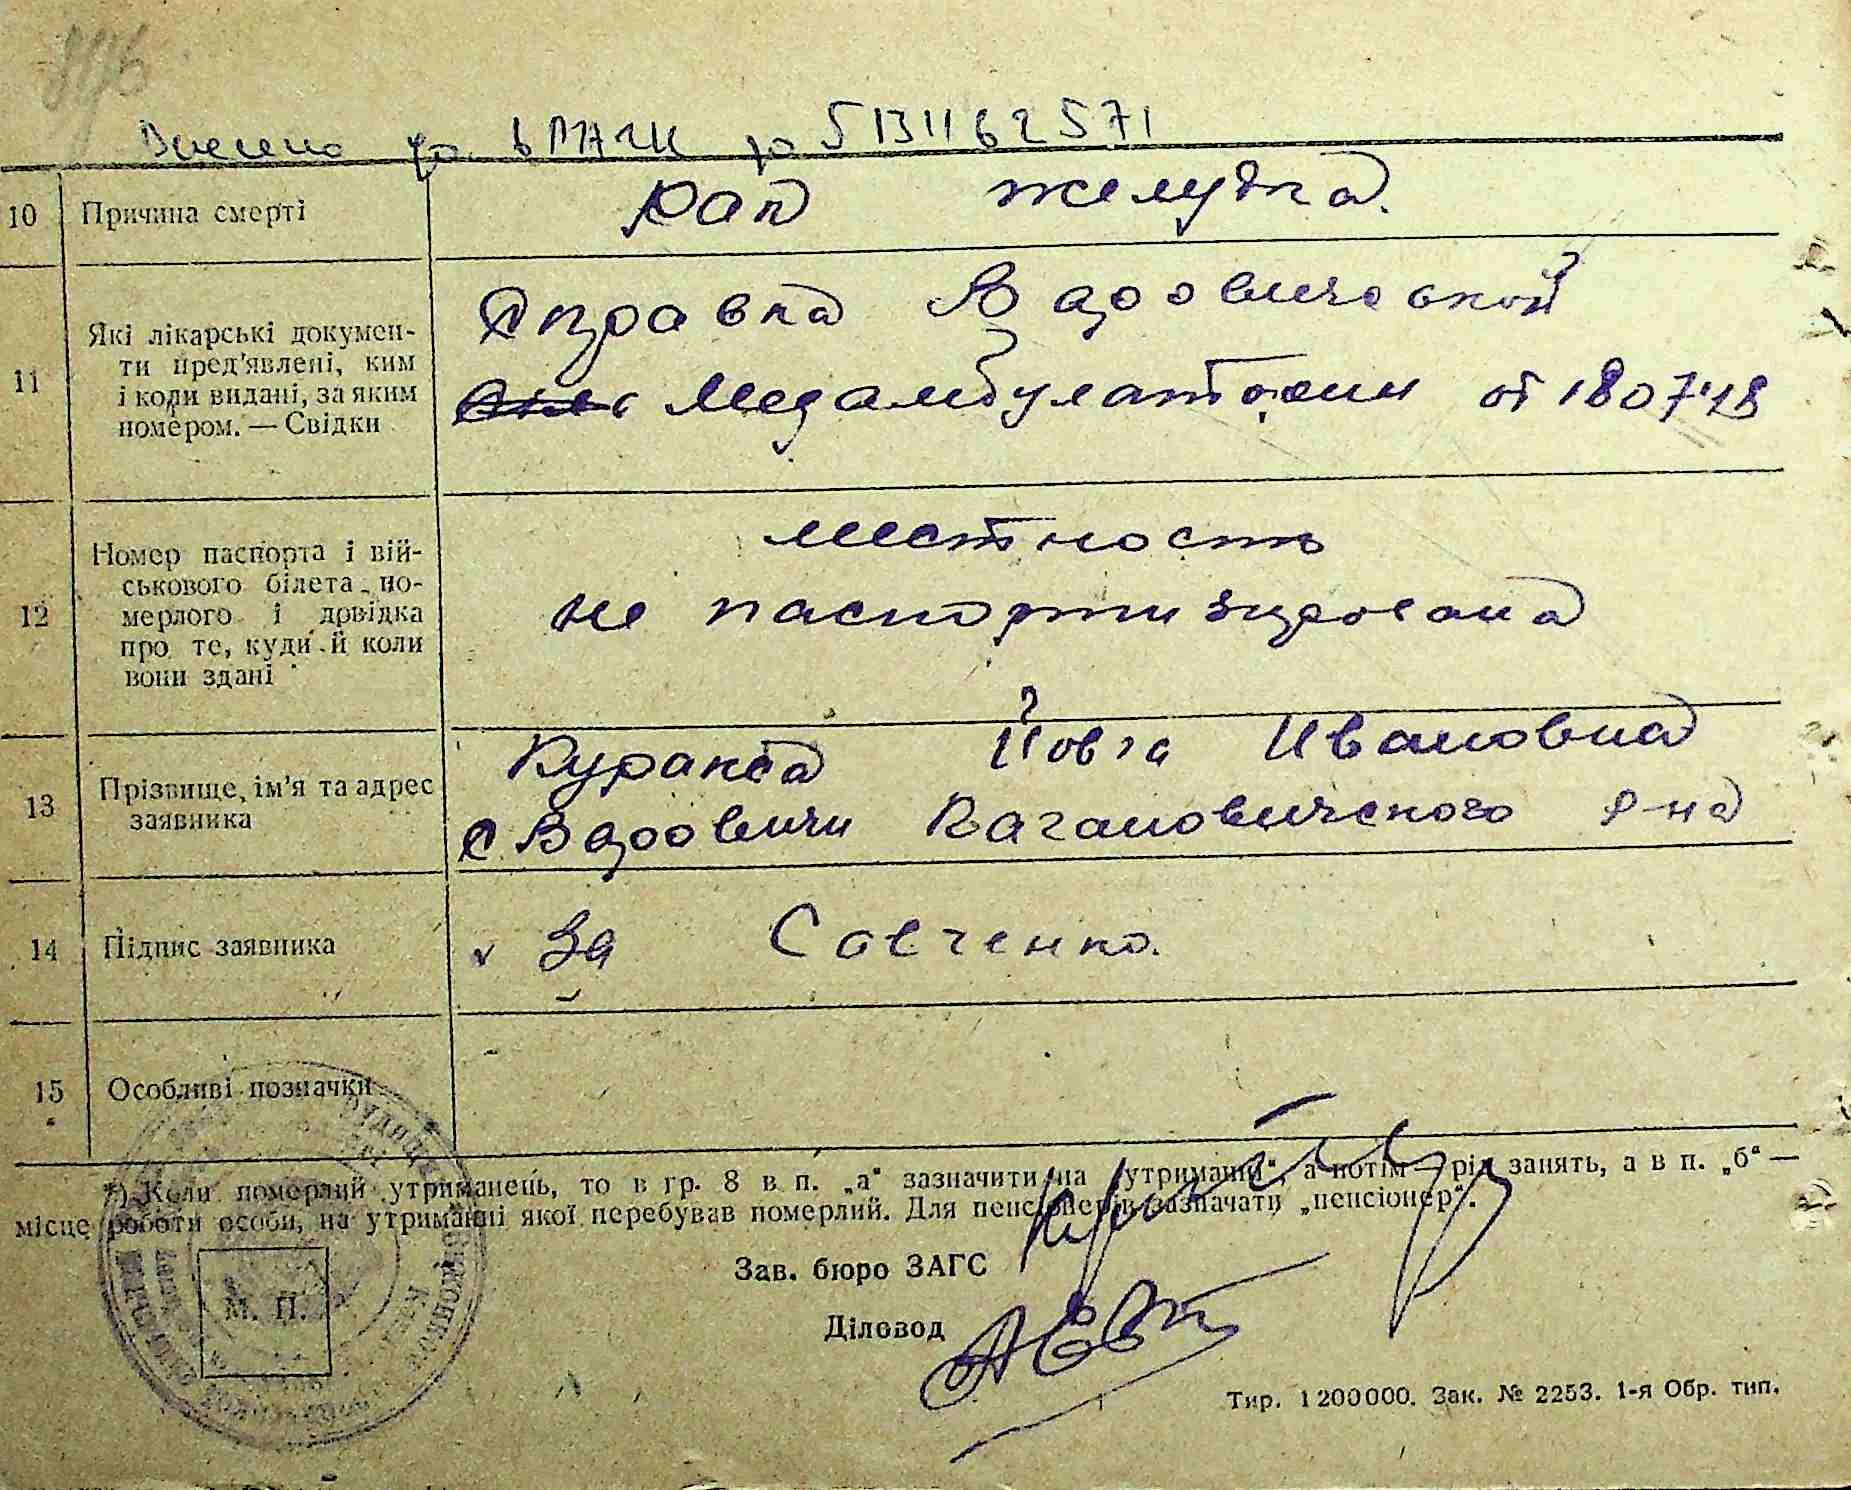 Внесено до
до 5131162571
10 Причина смерті
Рак желудка.
11 Які лікарські докумен-
ти пред'явлені, ким
і коли видані, за яким
номером. — Свідки
Справка Вдовической
Медамбулатории от 18 07 48
12 Номер паспорта і вій-
ськового білета по-
мерлого і довідка
про те, куди й коли
вони здані
местность
не паспортизирована
13 Прізвище, ім'я та адрес
заявника
Йовга Ивановна
с Вдовичи Кагановичского р-на
14 Підпис заявника
За Савченко.
15 Особливі позначки
*) Коли померлий утриманець, то в гр. 8 в п. „а“ зазначити на „утриманні“, а потім — рід занять, а в п. „б“ —
місце роботи особи, на утриманні якої перебував померлий. Для пенсіонерів зазначати „пенсіонер“.
Зав. бюро ЗАГС
М. П.
Діловод
Тир. 1200000. Зак. № 2253. 1-я Обр. тип.